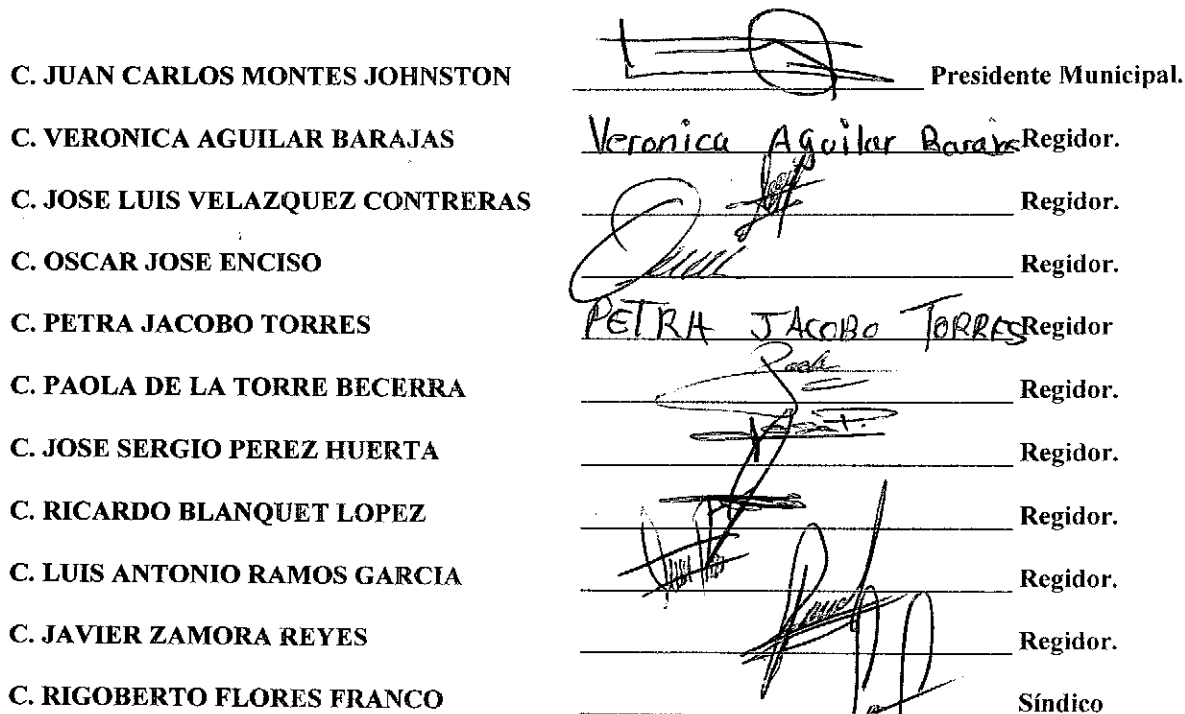 C. JUAN CARLOS MONTES JOHNSTON Presidente Municipal.
C. VERONICA AGUILAR BARAJAS Veronica Aguilar Barajas Regidor.
C. JOSE LUIS VELAZQUEZ CONTRERAS Regidor.
C. OSCAR JOSE ENCISO Regidor.
C. PETRA JACOBO TORRES PETRA JACOBO TORRES Regidor
C. PAOLA DE LA TORRE BECERRA Regidor.
C. JOSE SERGIO PEREZ HUERTA Regidor.
C. RICARDO BLANQUET LOPEZ Regidor.
C. LUIS ANTONIO RAMOS GARCIA Regidor.
C. JAVIER ZAMORA REYES Regidor.
C. RIGOBERTO FLORES FRANCO Síndico